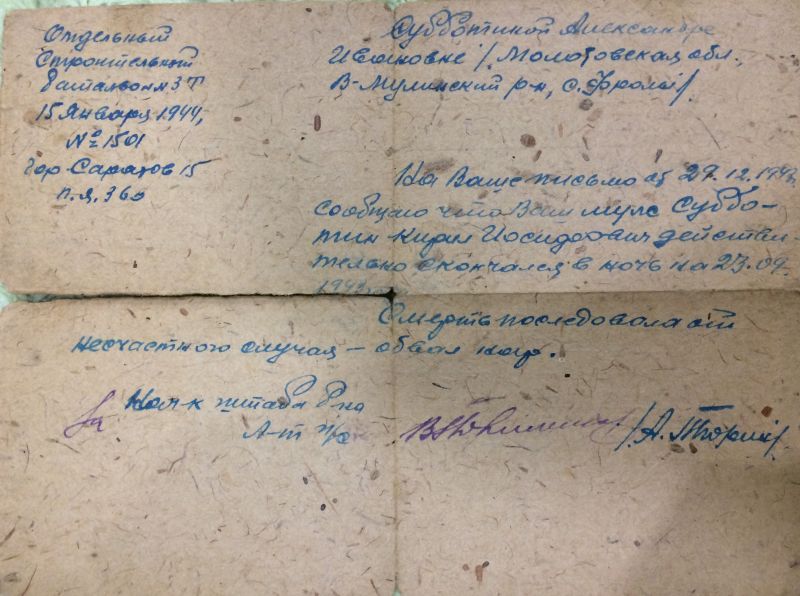 Отдельный
Строительный
батальон 3Т
15 Января 1944,
№ 1501
Гор Саратов 15
п.я. 360
Субботиной Александре
Ивановне /Молотовская обл.,
В-Мулинский р-н, с. Фролы/
На Ваше письмо от 29.12.1943
сообщаю что Ваш муж Суббо-
тин Кирил Иосифович действи-
тельно скончался в ночь на 23.09.
1943г.
Смерть последовала от
несчастного случая – обвал
За Нач-к штаба б-на
Л-т